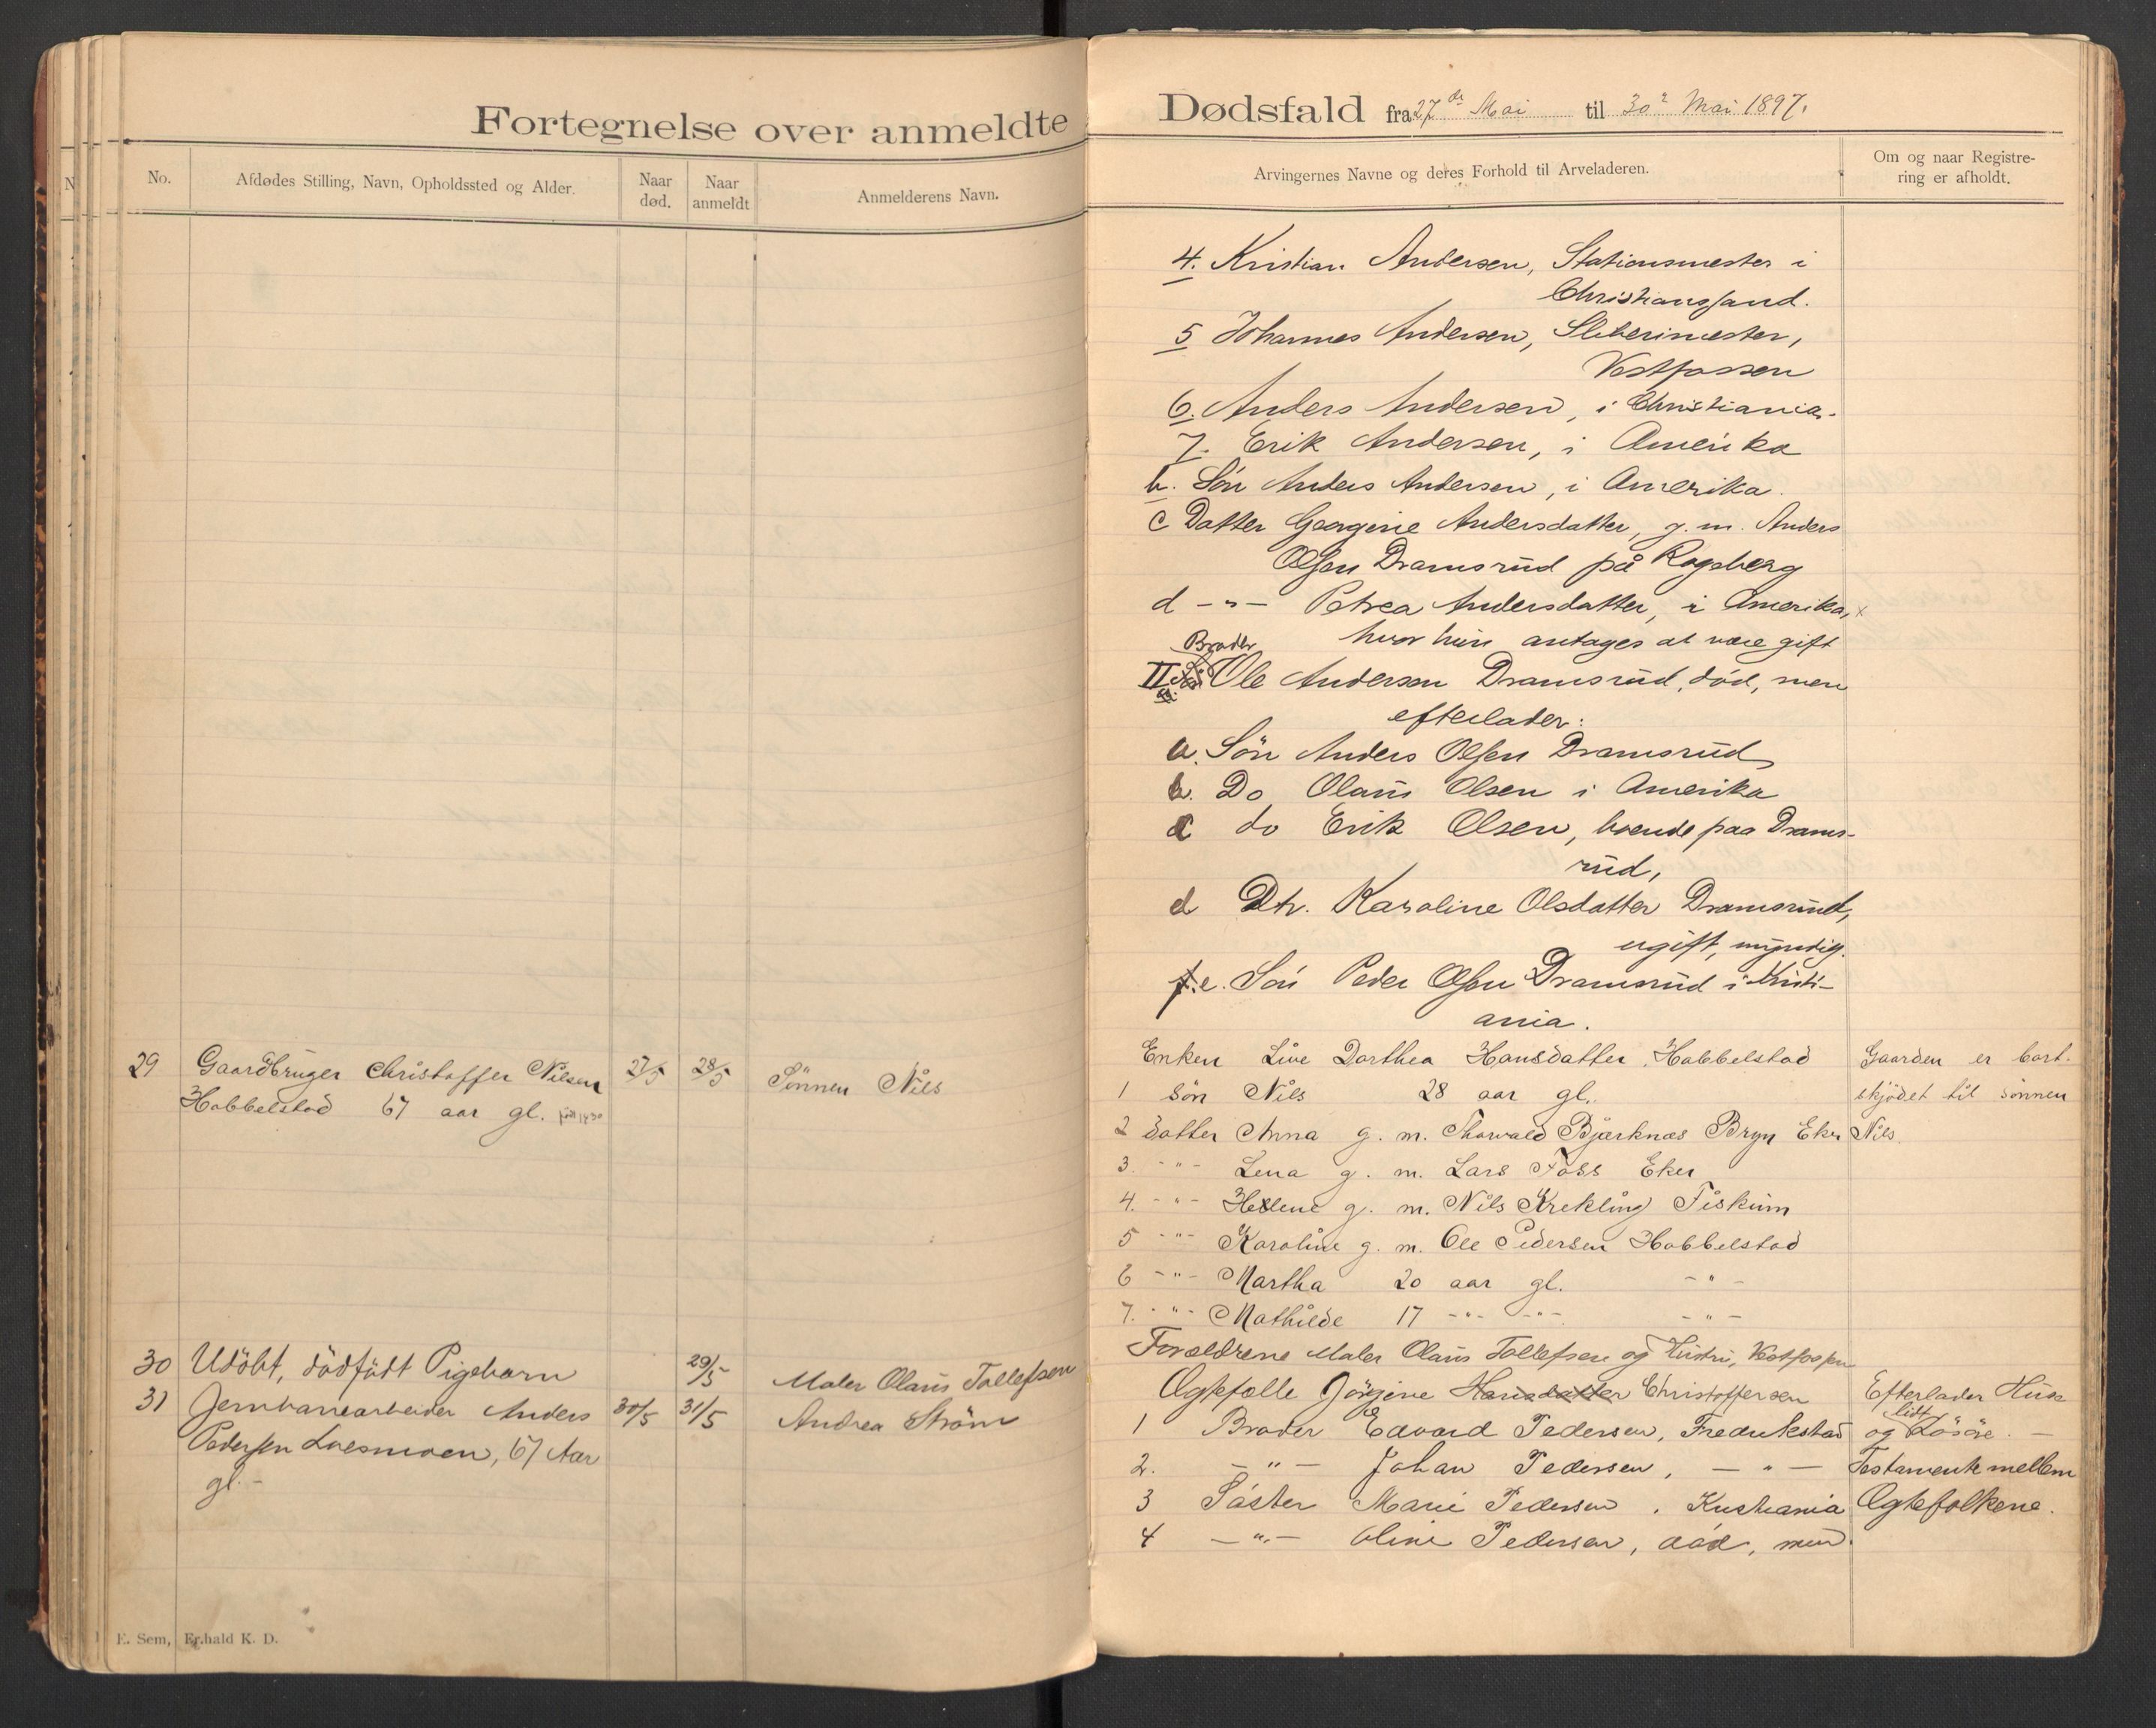 Fortegnelse over anmeldte
No.
Afdødes Stilling, Navn, Opholdssted og Alder.
Naar død.
Naar anmeldt
Anmelderens Navn.
29 Gaardbruger Christoffer Nilsen 27/5 28/5 Sønnen Nils
Hobbelstad 67 aar gl.
30 Udöbt, dödfödt Pigebarn 29/5 Maler Olaus Tollefsen
31 Jernbanearbeider Anders 30/5 31/5 Andrea Ström
Pedersen Loesmoen, 67 Aar
gl. -
E. Sem, Fr.hald K. D.
Dødsfald fra 27de Mai til 30e Mai 1897.
Arvingernes Navne og deres Forhold til Arveladeren.
Om og naar Registre-
ring er afholdt.
4. Kristian Andersen, Stationsmester i
Christianssand.
5 Johannes Andersen, Sliberimester,
Vestfossen
6. Anders Andersen, i Christiania.
7. Erik Andersen, i Amerika
b. Sön Anders Andersen, i Amerika.
c Datter Georgine Andersdatter, g. m. Anders
Olsen Dramsrud på Rogsberg
d - " - Petrea Andersdatter, i Amerika,
hvor hun antages at være gift
Broder
II Ole Andersen Dramsrud, död, men
efterlader:
a. Sön Anders Olsen Dramsrud
b. Do Olaus Olsen i Amerika
c do Erik Olsen, boende paa Drams-
rud,
d Dtr. Karoline Olsdatter Dramsrud,
ugift, myndig.
e. Sön Peder Olsen Dramsrud i Kristi-
ania.
Enken Live Dorthea Hansdatter Hobbelstad Gaarden er bort-
1 Sön Nils 28 aar gl. skjödet til sönnen
2 datter Anna g. m. Thorvald Bjærknæs Bryn Eker Nils.
3. - " - Lena g. m. Lars Foss Eker
4. - " - Helene g. m. Nils Krekling Fiskum
5 - " - Karoline g. m. Ole Pedersen Hobbelstad
6 - " - Martha 20 aar gl. - " -
7. - " - Mathilde 17 - " - - " - - " -
Forældrene Maler Olaus Tollefsen og Hustru, Vestfossen
Ægtefælle Jörgine Hansdatter Christoffersen Efterlader Hus
1 Broder Edvard Pedersen, Fredrikstad og lidt Lösöre. -
2. - " - Johan Pedersen, - " - Testamente mellem
3 Söster Marie Pedersen, Kristiania Ægtefolkene.
4 - " - Oline Pedersen, död, men